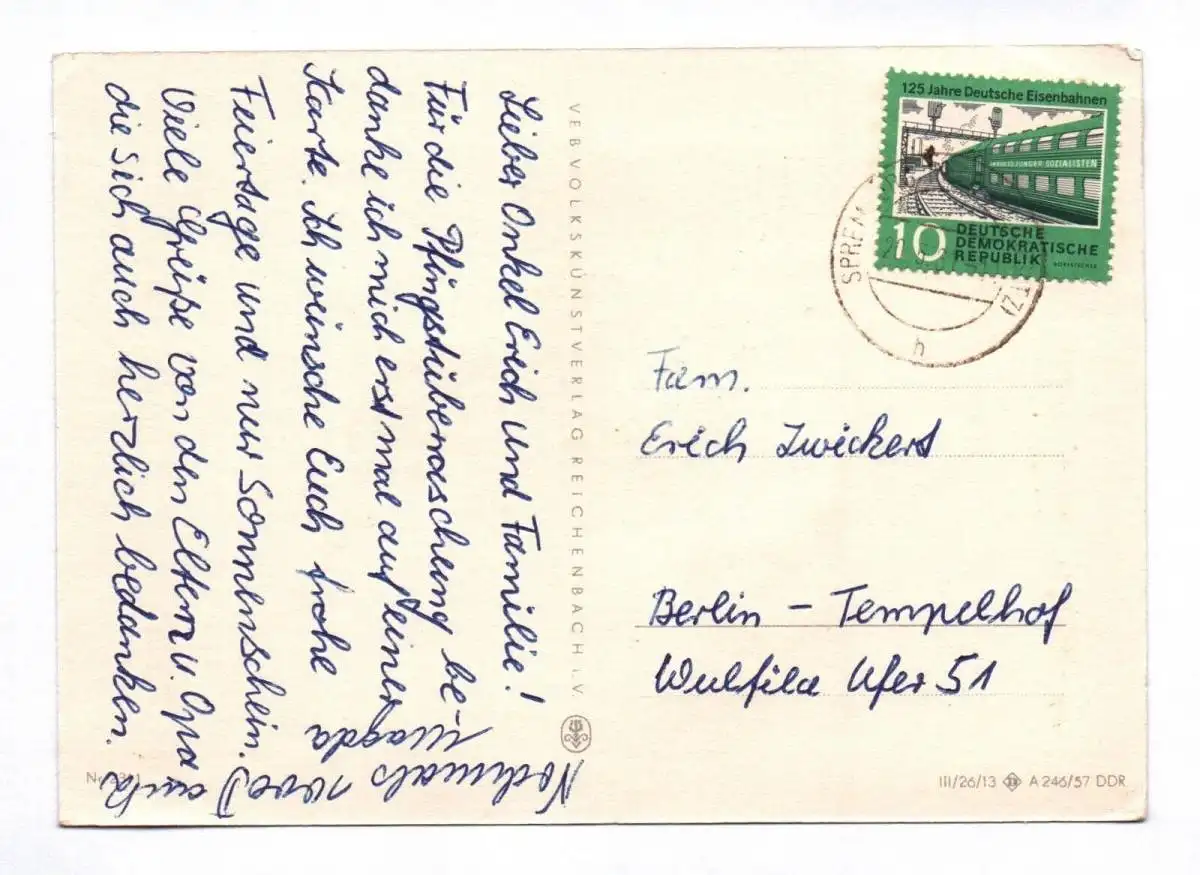 Lieber Onkel Erich und Familie!
Für die Pfingstüberraschung be-
danke ich mich erst mal auf einer
Karte. Ich wünsche Euch frohe
Feiertage und nur Sonnenschein.
Viele Grüße von den Eltern u. Opa
die sich auch herzlich bedanken.
Nochmals
Magda
VEB VOLKSKUNSTVERLAG REICHENBACH i.V.
125 Jahre Deutsche Eisenbahnen
JUNGER SOZIALISTEN
10 DEUTSCHE
DEMOKRATISCHE
REPUBLIK
SPREM
h
Fam.
Erich Zwickert
Berlin - Tempelhof
Wulfila Ufer 51
III/26/13 A 246/57 DDR